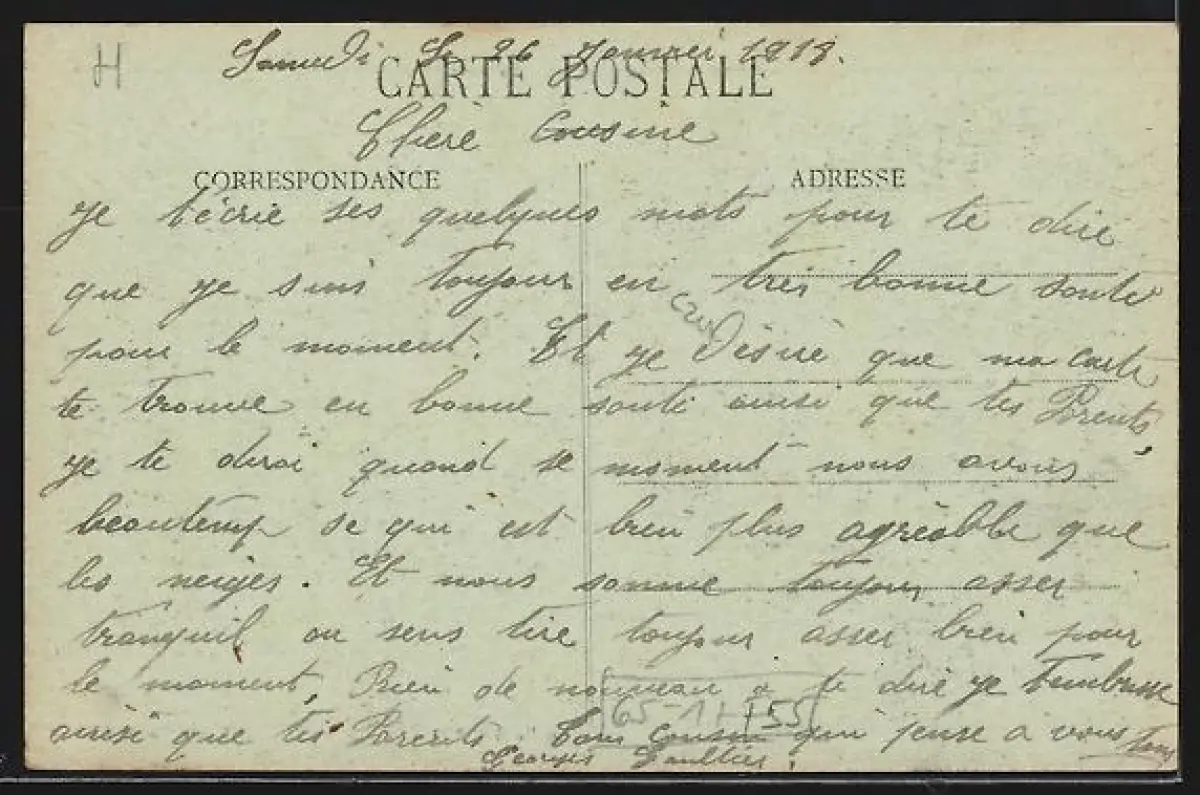 H
Samedi Le 26 Janvier 1918.
CARTE POSTALE
Chère Cousine
CORRESPONDANCE
ADRESSE
Je técrie ses quelques mots pour te dire
que je suis toujour en très bonne sante
pour le moment. Et je Désire que ma carte
te trouve en bonne santé ainsi que tes Parents,
je te dirai quand se moment nous avons
beautemp se qui est bien plus agréable que
les neiges. Et nous somme toujour asser
tranquil on sens tire toujour asser bien pour
le moment, Rien de nouveau a te dire je tembrasse
ainsi que tes Parents. Ton Cousin qui pense a vous tous
65-1H 155
Georges Gaultier.